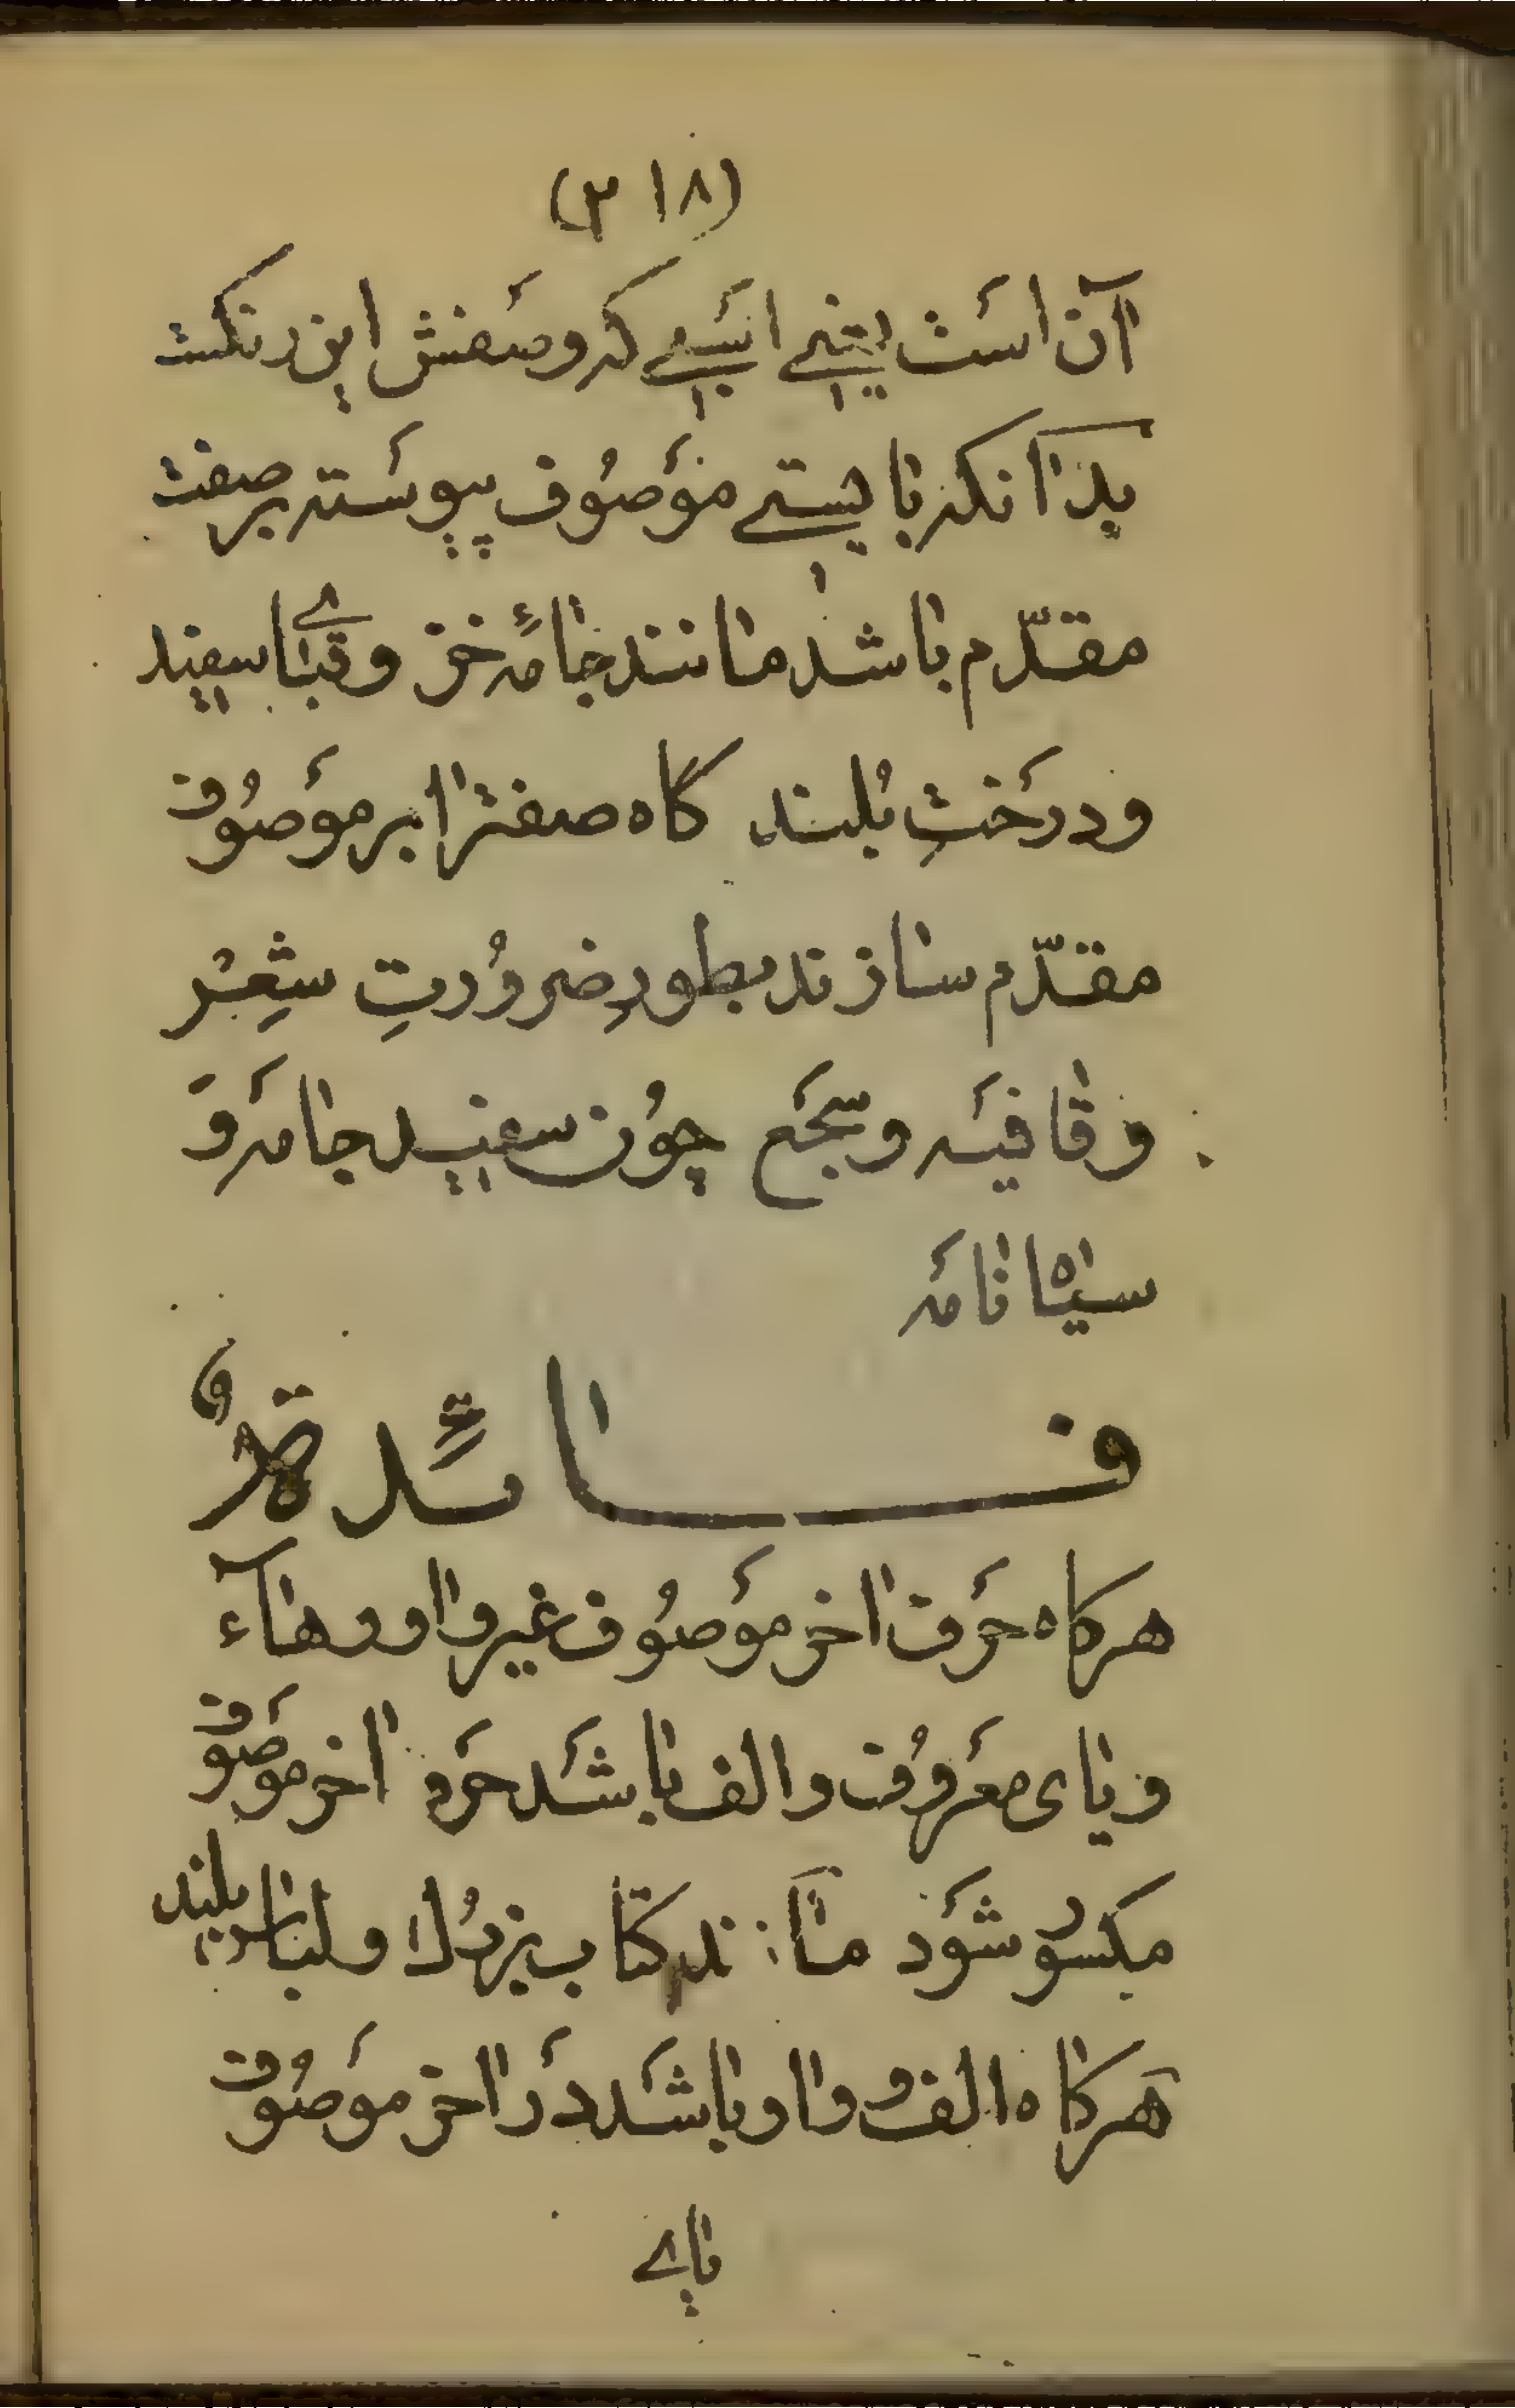 (٣١٨)
آن است یعنے اسپے که وصفش این رنکست
بدانکه بایستے موصُوف پیوسته بر صفت
مقدّم باشد مانند جامهٔ خز و قباے سپید
و درَختِ بُلند کاه صفترا بر موَصُوف
مقدّم سازند بطورِ ضروُرتِ شِعْر
و قافیَه و سجَع چوُن سپید جامَه وَ
سیاه نامَه
فائدةٌ
هرکاه حَرف اخر موَصُوف غیر واو و هآء
و یای معَروُف و الف باشَد حَرف اخر موَصوف
مکسوُر شوَد مانند کتاب بزرُك و لباس بلند
هَرکاه الف و واو باشَد دَر اخر موَصُوف
یاے